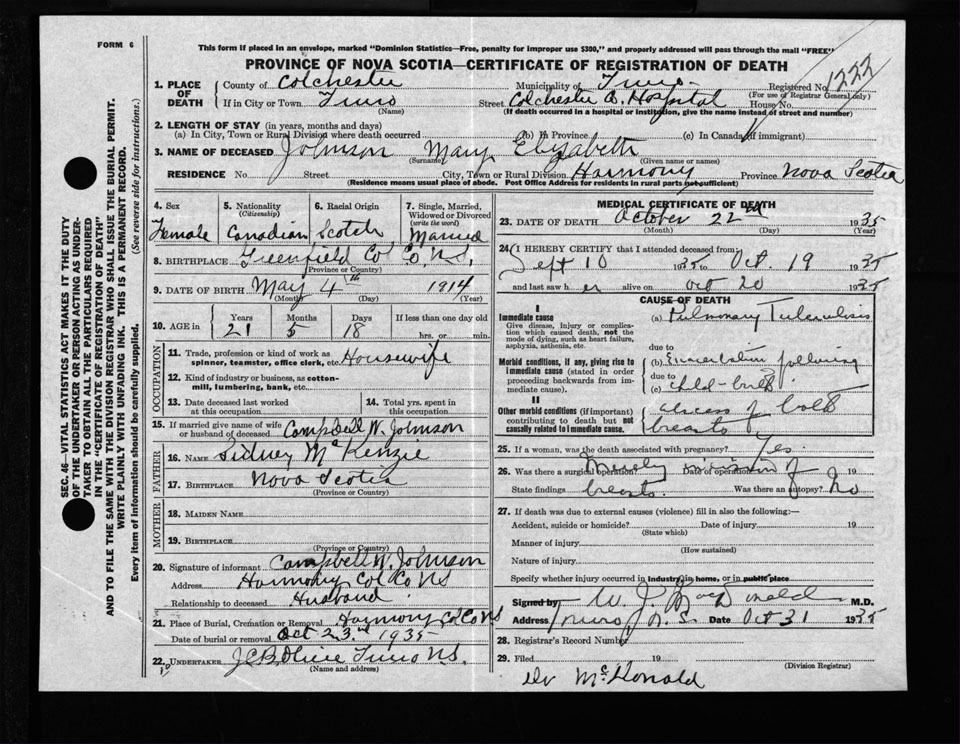 FORM 6
This form if placed in an envelope, marked "Dominion Statistics—Free, penalty for improper use $300," and properly addressed will pass through the mail "FREE"
PROVINCE OF NOVA SCOTIA—CERTIFICATE OF REGISTRATION OF DEATH
1222
1. PLACE OF DEATH
County of Colchester Municipality of Truro Registered No.
(For use of Registrar General only)
If in City or Town Truro Street Colchester Co. Hospital House No.
(Name) (If death occurred in a hospital or institution, give the name instead of street and number)
2. LENGTH OF STAY (in years, months and days)
(a) In City, Town or Rural Division where death occurred (b) In Province (c) In Canada (if immigrant)
3. NAME OF DECEASED Johnson Mary Elizabeth
(Surname) (Given name or names)
RESIDENCE No. Street City, Town or Rural Division Harmony Province Nova Scotia
(Residence means usual place of abode. Post Office Address for residents in rural parts not sufficient)
4. Sex Female
5. Nationality (Citizenship) Canadian
6. Racial Origin Scotch
7. Single, Married, Widowed or Divorced (write the word) Married
8. BIRTHPLACE Greenfield Col Co. N.S.
(Province or Country)
9. DATE OF BIRTH May 4th 1914
(Month) (Day) (Year)
10. AGE in Years Months Days If less than one day old
21 5 18 hrs. or min.
OCCUPATION
11. Trade, profession or kind of work as spinner, teamster, office clerk, etc. Housewife
12. Kind of industry or business, as cotton-mill, lumbering, bank, etc.
13. Date deceased last worked at this occupation
14. Total yrs. spent in this occupation
15. If married give name of wife or husband of deceased Campbell W. Johnson
FATHER
16. NAME Sidney McKenzie
17. BIRTHPLACE Nova Scotia
(Province or Country)
MOTHER
18. MAIDEN NAME
19. BIRTHPLACE
(Province or Country)
20. Signature of informant Campbell W. Johnson
Address Harmony Col Co NS
Relationship to deceased Husband
21. Place of Burial, Cremation or Removal Harmony Col Co NS
Date of burial or removal Oct 23rd 1935
22. UNDERTAKER Truro N.S.
(Name and address)
MEDICAL CERTIFICATE OF DEATH
23. DATE OF DEATH October 22nd 1935
(Month) (Day) (Year)
24. I HEREBY CERTIFY that I attended deceased from:
Sept 10 1935 to Oct. 19 1935
and last saw her alive on Oct 20 1935
CAUSE OF DEATH
I
Immediate cause
Give disease, injury or complication which caused death, not the mode of dying, such as heart failure, asphyxia, asthenia, etc.
(a) Pulmonary Tuberculosis
due to
Morbid conditions, if any, giving rise to immediate cause (stated in order proceeding backwards from immediate cause).
(b) Exacerbation following
due to
(c) child-birth
II
Other morbid conditions (if important) contributing to death but not causally related to immediate cause.
abscess of both breasts
25. If a woman, was the death associated with pregnancy? Yes
26. Was there a surgical operation? Merely incision of Date of operation 19
State findings breasts. Was there an autopsy? No
27. If death was due to external causes (violence) fill in also the following:—
Accident, suicide or homicide? Date of injury 19
(State which)
Manner of injury
(How sustained)
Nature of injury
Specify whether injury occurred in industry, in home, or in public place
Signed by W. J. MacDonald M.D.
Address Truro N.S. Date Oct 31 1935
28. Registrar's Record Number
29. Filed 19
(Division Registrar)
Dr McDonald
SEC. 46—VITAL STATISTICS ACT MAKES IT THE DUTY
OF THE UNDERTAKER OR PERSON ACTING AS UNDER-
TAKER TO OBTAIN ALL THE PARTICULARS REQUIRED
IN THE "CERTIFICATE OF REGISTRATION OF DEATH"
AND TO FILE THE SAME WITH THE DIVISION REGISTRAR WHO SHALL ISSUE THE BURIAL PERMIT.
WRITE PLAINLY WITH UNFADING INK. THIS IS A PERMANENT RECORD.
Every item of information should be carefully supplied. (See reverse side for instructions.)